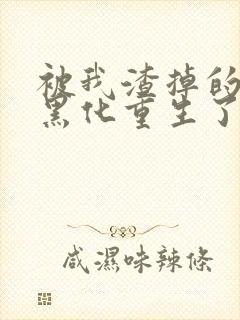 被我渣掉的
黑化重生了
咸濕味辣條